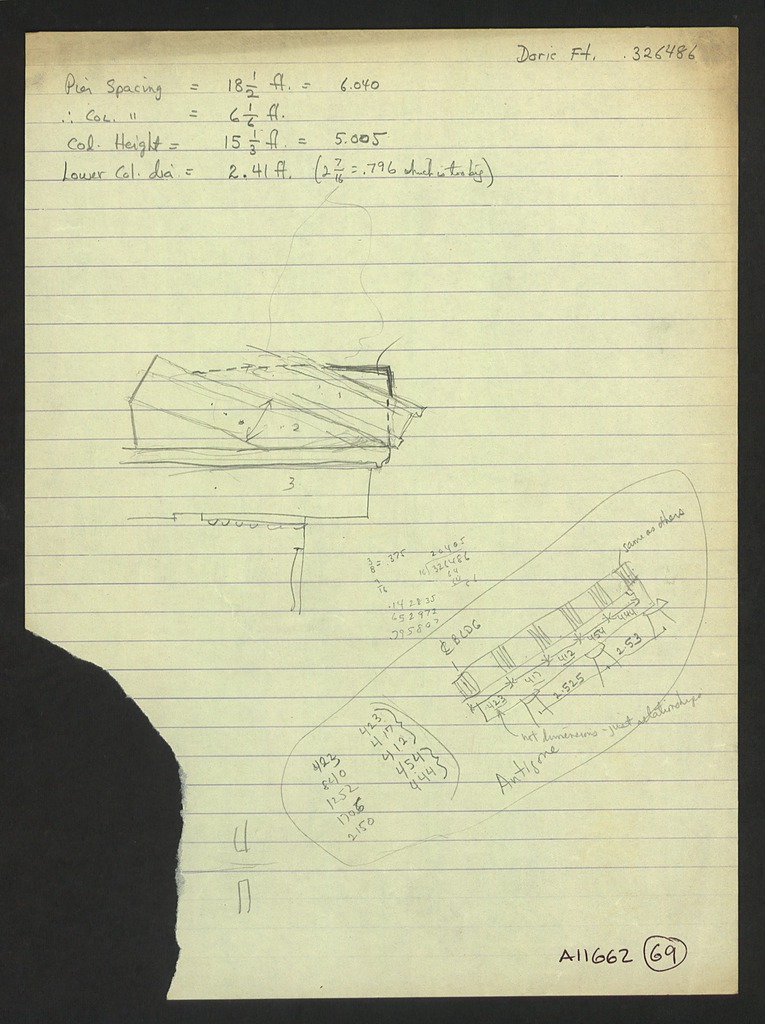 Doric Ft. .326486
Pier Spacing = 18 1/2 ft. = 6.040
∴ Col. " = 6 1/6 ft.
Col. Height = 15 1/3 ft. = 5.005
Lower Col. dia = 2.41 ft. (2 7/16 = .796 which is too big)
1
2
3
3/8 = .375
7/16
20405
16)326486
64
.142835
652972
.795807
same as others
℄ BLDG
423 417 412 454 444
2.525 2.53
not dimensions - just relationships
Antigone
423
417
412
454
444
423
840
1252
1706
2150
A11662 69